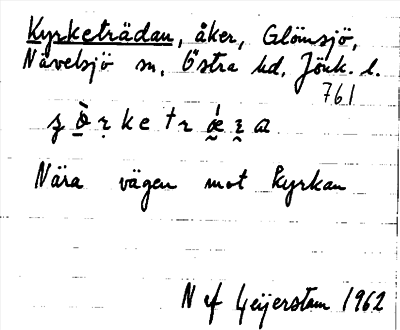 Kyrketrädan, åker, Glömsjö,
Nävelsjö sn, Östra hd, Jönk. l.
761
Nära vägen mot kyrkan
N af Geijerstam 1962